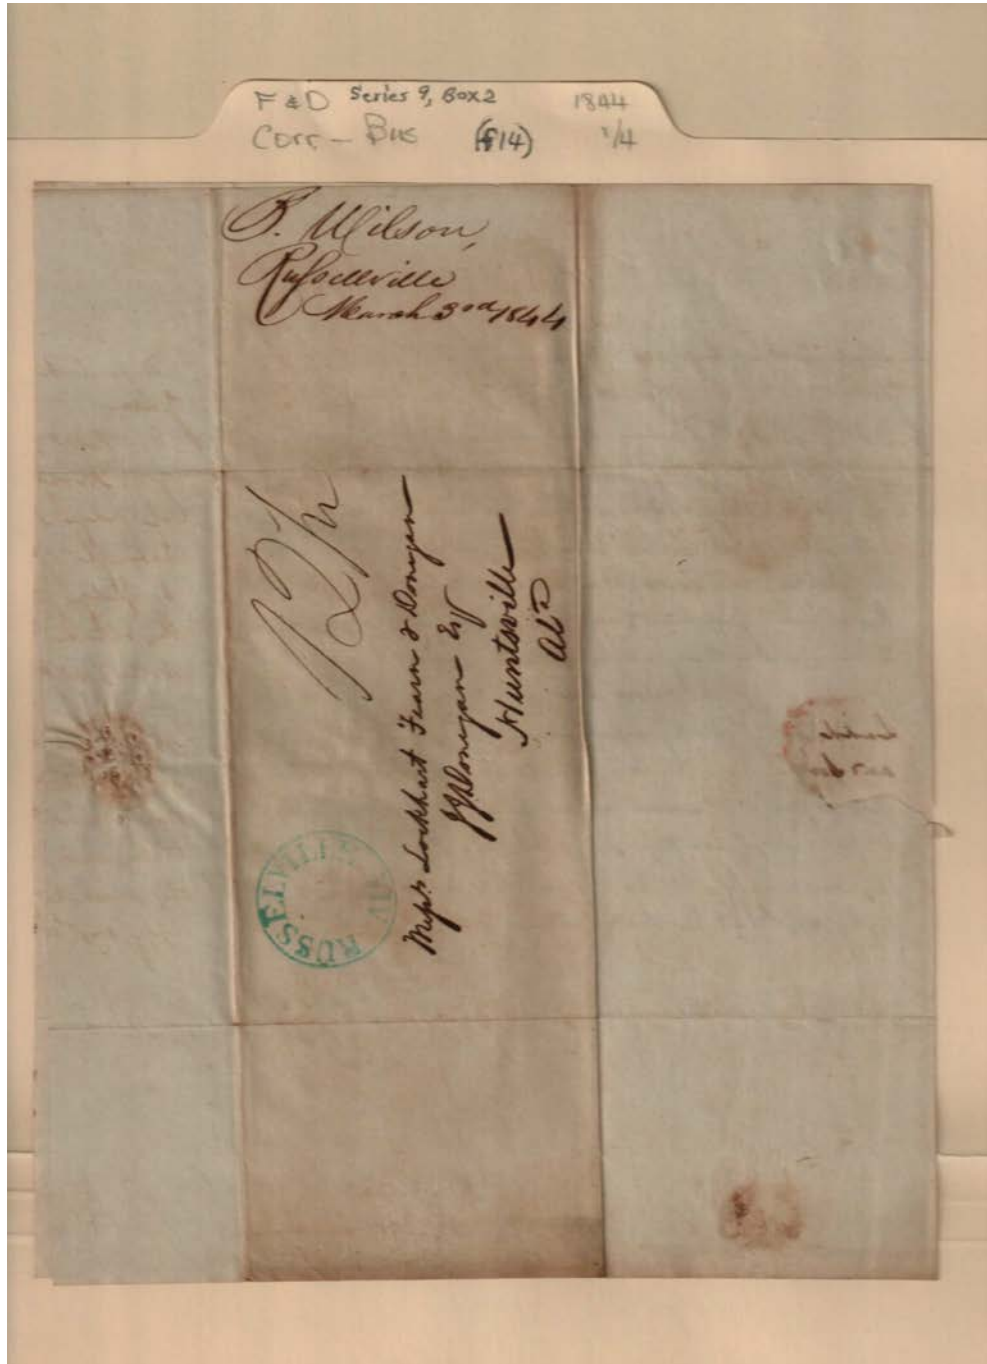 F & D Series 9, Box 2 1844
Corr - Bus (f14) 1/4
B. Wilson,
Russellville
March 3rd 1844
12 1/2
Messrs Lockhart Fearn & Donegan
Donegan Esqr
Huntsville
Ala
RUSSELVILLE